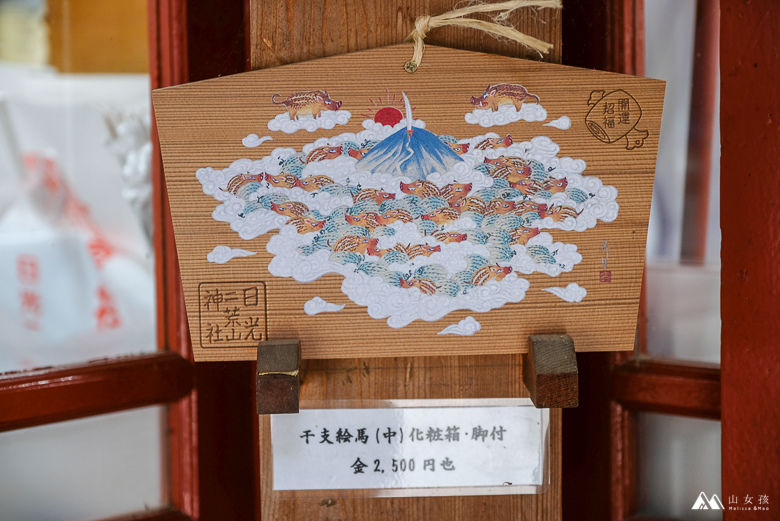 開運
招福
日光
二荒山
神社
干支絵馬(中)化粧箱・脚付
金2,500円也
山女孩
Melissa &Mao